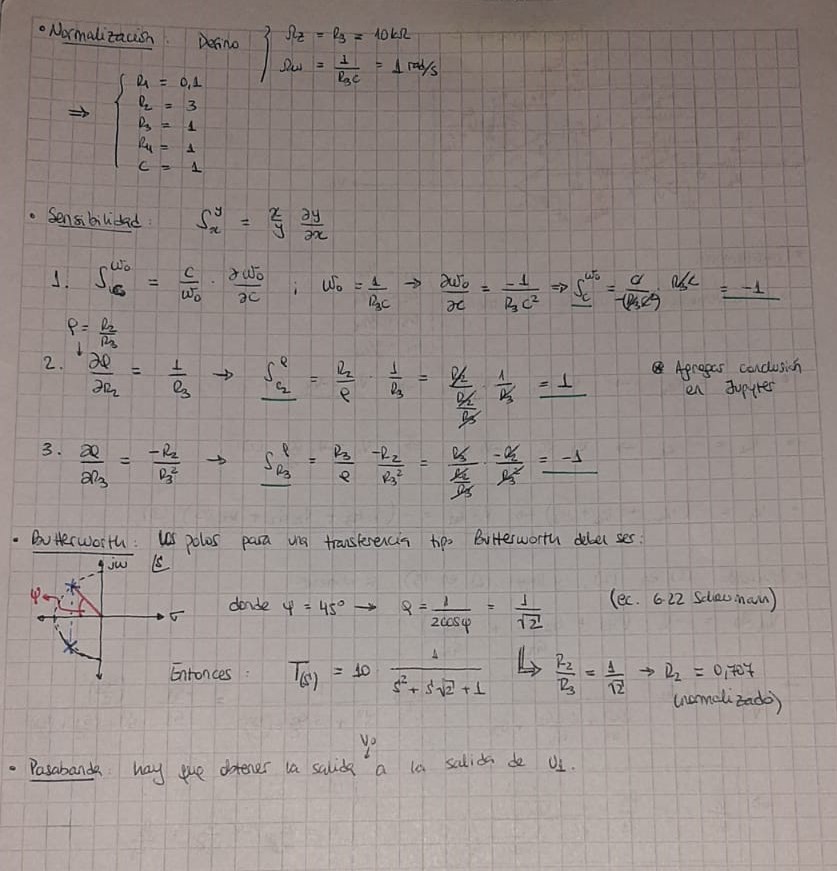 • Normalización. Defino { Ωz = R3 = 10kΩ
Ωw = 1/(R3C) = 1 rad/s
⇒ { R1 = 0,1
R2 = 3
R3 = 1
R4 = 1
C = 1
• Sensibilidad: S_x^y = x/y ∂y/∂x
1. S_C^ω0 = C/ω0 · ∂ω0/∂C ; ω0 = 1/(R3C) → ∂ω0/∂C = -1/(R3C²) ⇒ S_C^ω0 = C/(-(R3C²)) · R3C = -1
Q = R2/R3
2. ↓ ∂Q/∂R2 = 1/R3 → S_R2^Q = R2/Q · 1/R3 = R2/(R2/R3) · 1/R3 = 1
⊛ Agregar conclusión en Jupyter
3. ∂Q/∂R3 = -R2/R3² → S_R3^Q = R3/Q · -R2/R3² = R3/(R2/R3) · -R2/R3² = -1
• Butterworth: Los polos para una transferencia tipo Butterworth deben ser:
jω
φ
σ
donde φ = 45° → Q = 1/(2cosφ) = 1/√2 (ec. 6.22 Schaumann)
Entonces: T(s) = 10 · 1/(s² + s√2 + 1) ↳ R2/R3 = 1/√2 → R2 = 0,707
(normalizado)
V0
• Pasabanda: hay que obtener la salida a la salida de U1.